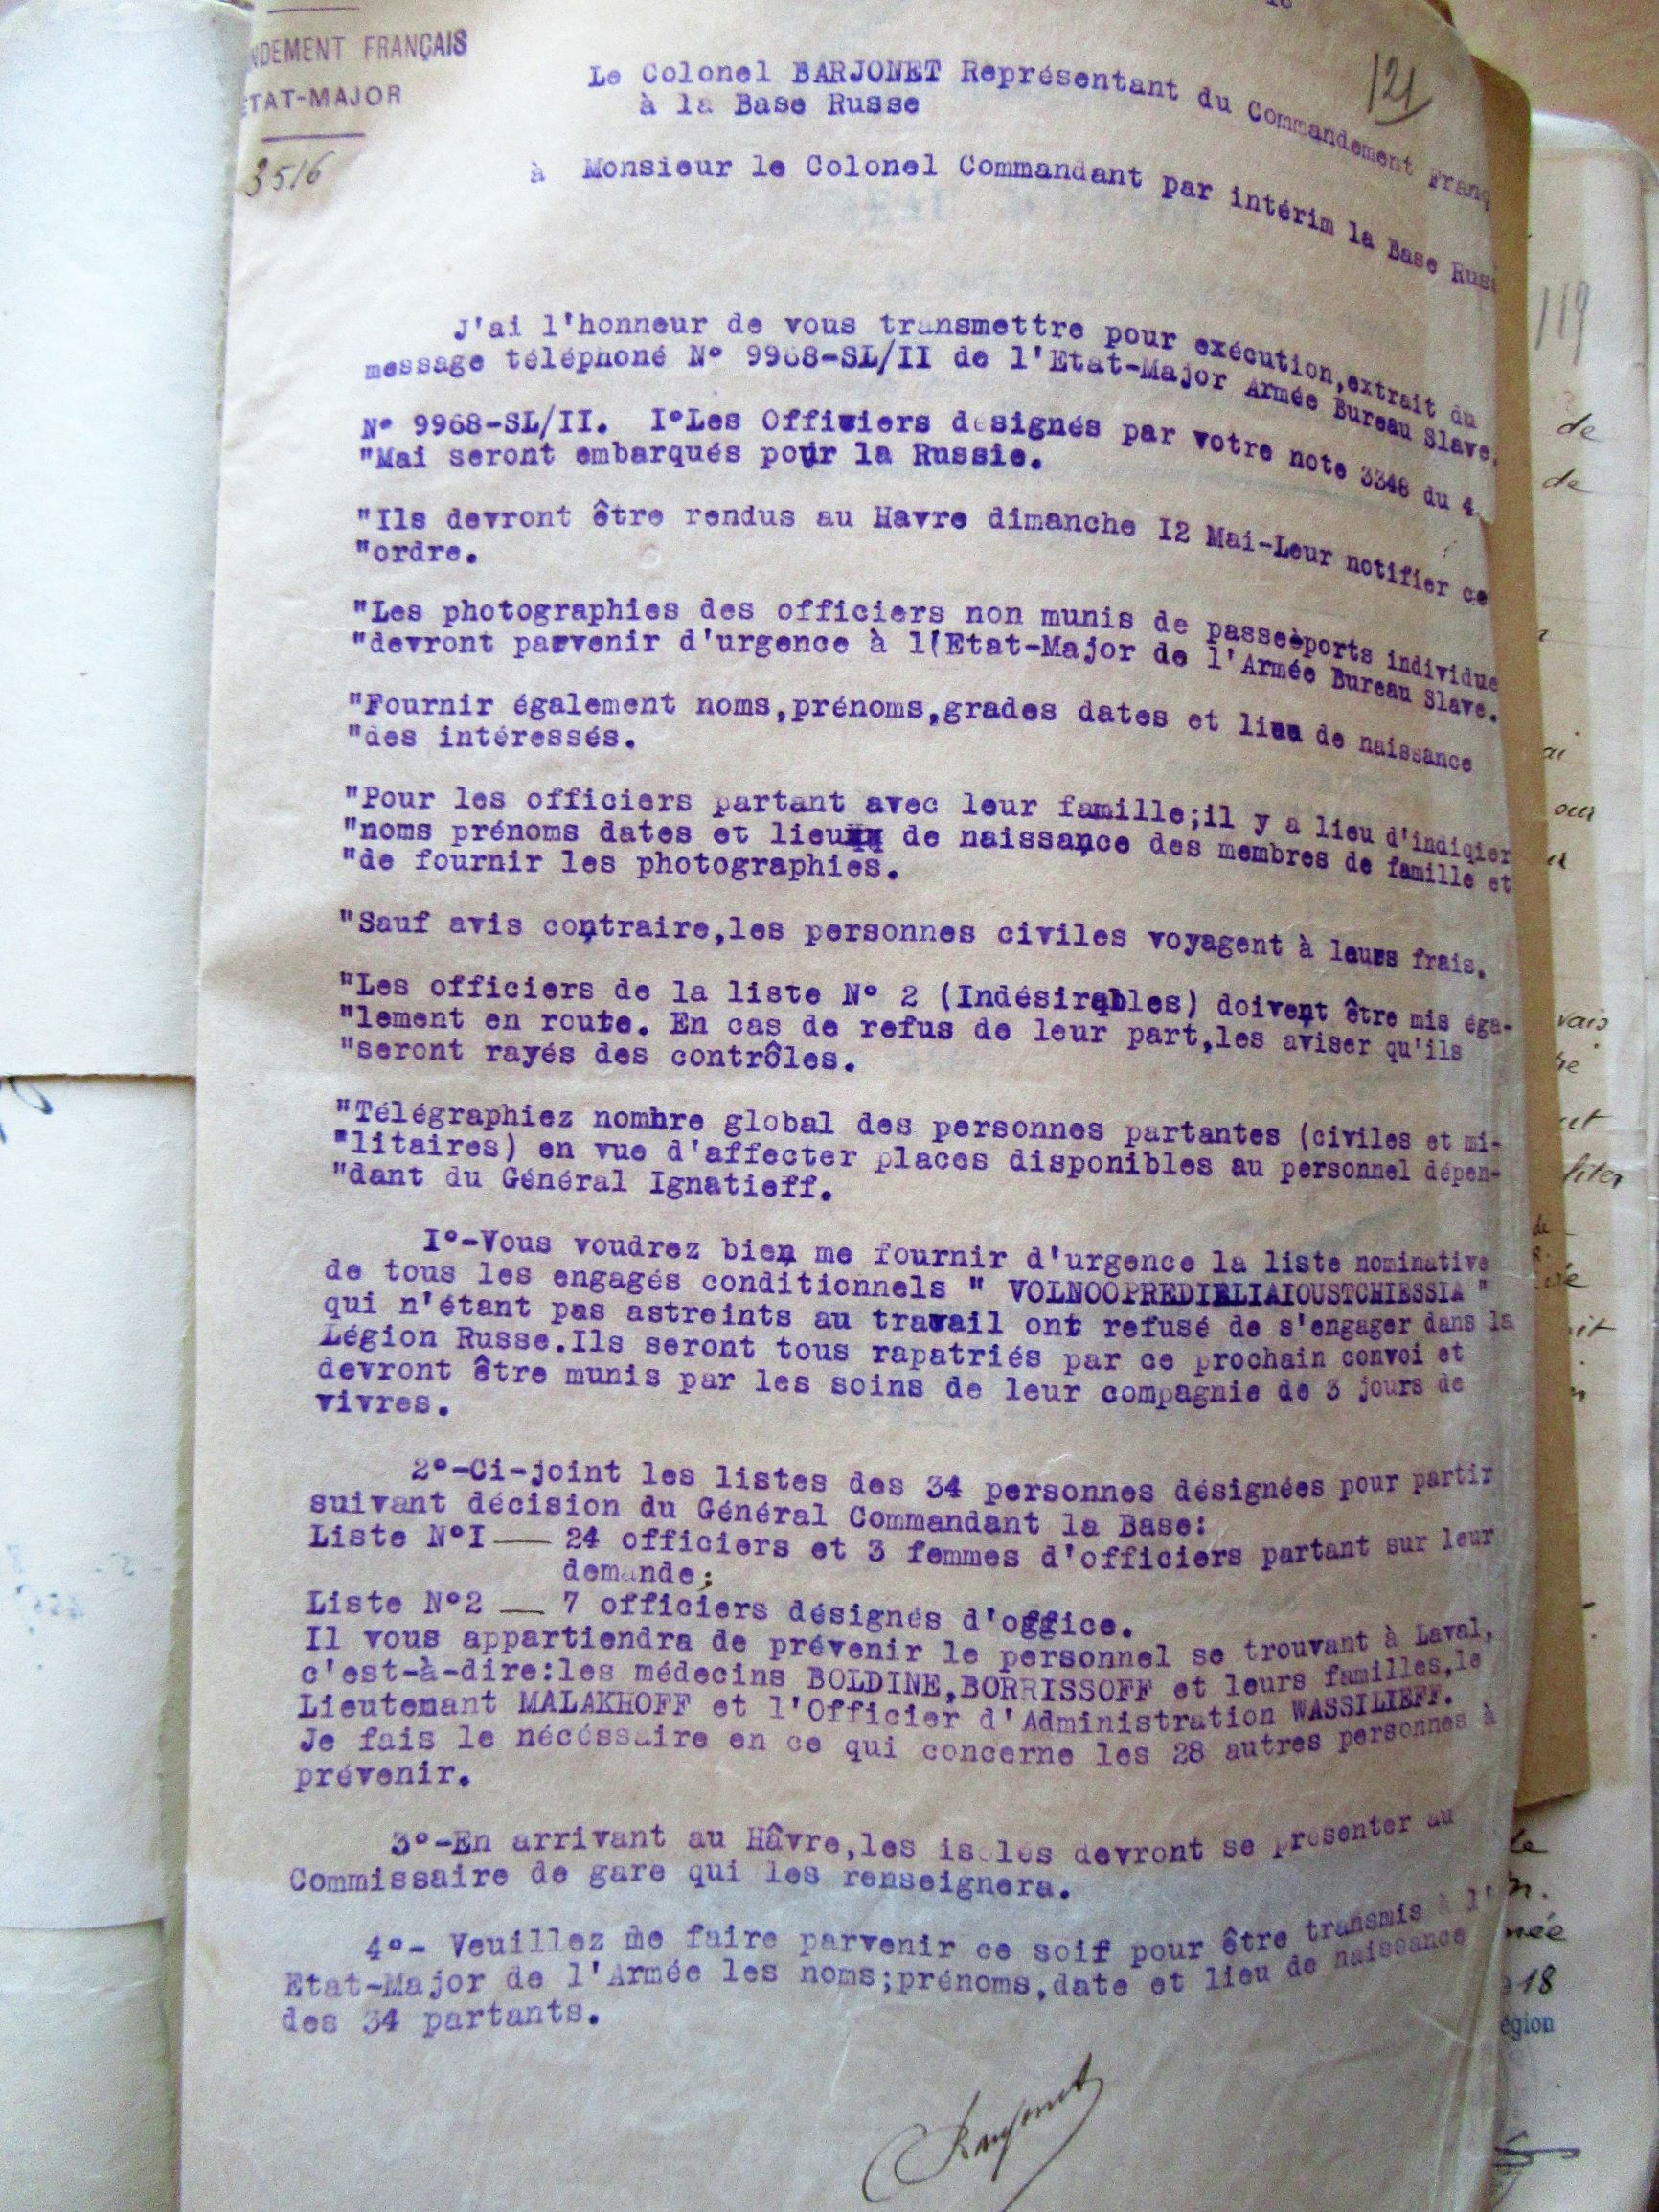 NDEMENT FRANÇAIS
TAT-MAJOR
3516
121
Le Colonel BARJONET Représentant du Commandement Franç
à la Base Russe
à Monsieur le Colonel Commandant par intérim la Base Russ
J'ai l'honneur de vous transmettre pour exécution,extrait du
message téléphoné N° 9968-SL/II de l'Etat-Major Armée Bureau Slave.
N° 9968-SL/II. I°Les Officiers désignés par votre note 3348 du 4
"Mai seront embarqués pour la Russie.
"Ils devront être rendus au Havre dimanche I2 Mai-Leur notifier ce
"ordre.
"Les photographies des officiers non munis de passeèports individue
"devront parvenir d'urgence à l'Etat-Major de l'Armée Bureau Slave.
"Fournir également noms,prénoms,grades dates et lieu de naissance
"des intéressés.
"Pour les officiers partant avec leur famille;il y a lieu d'indiqier
"noms prénoms dates et lieu de naissance des membres de famille et
"de fournir les photographies.
"Sauf avis contraire,les personnes civiles voyagent à leurs frais.
"Les officiers de la liste N° 2 (Indésirables) doivent être mis éga-
"lement en route. En cas de refus de leur part,les aviser qu'ils
"seront rayés des contrôles.
"Télégraphiez nombre global des personnes partantes (civiles et mi-
"litaires) en vue d'affecter places disponibles au personnel dépen-
"dant du Général Ignatieff.
I°-Vous voudrez bien me fournir d'urgence la liste nominative
de tous les engagés conditionnels " VOLNOOPREDIELIAIOUSTCHIESSIA "
qui n'étant pas astreints au travail ont refusé de s'engager dans la
Légion Russe.Ils seront tous rapatriés par ce prochain convoi et
devront être munis par les soins de leur compagnie de 3 jours de
vivres.
2°-Ci-joint les listes des 34 personnes désignées pour partir
suivant décision du Général Commandant la Base:
Liste N°I — 24 officiers et 3 femmes d'officiers partant sur leur
demande;
Liste N°2 — 7 officiers désignés d'oggice.
Il vous appartiendra de prévenir le personnel se trouvant à Laval,
c'est-à-dire:les médecins BOLDINE,BORRISSOFF et leurs familles,le
Lieutenant MALAKHOFF et l'Officier d'Administration WASSILIEFF.
Je fais le nécéssaire en ce qui concerne les 28 autres personnes à
prévenir.
3°-En arrivant au Hâvre,les isolés devront se présenter au
Commissaire de gare qui les renseignera.
4°- Veuillez me faire parvenir ce soir pour être transmis à l'
Etat-Major de l'Armée les noms;prénoms,date et lieu de naissance
des 34 partants.
Barjonet
119
de
de
ai
our
vais
ut
18
égion